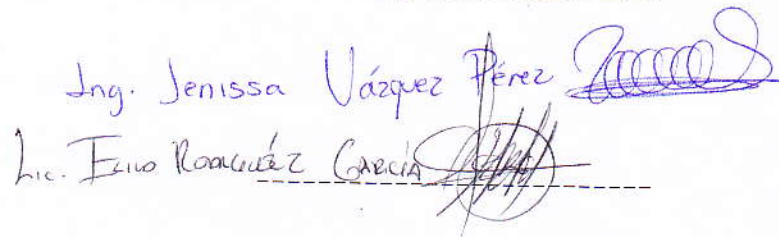 Ing. Jenissa Vázquez Pérez
Lic. Rodríguez García